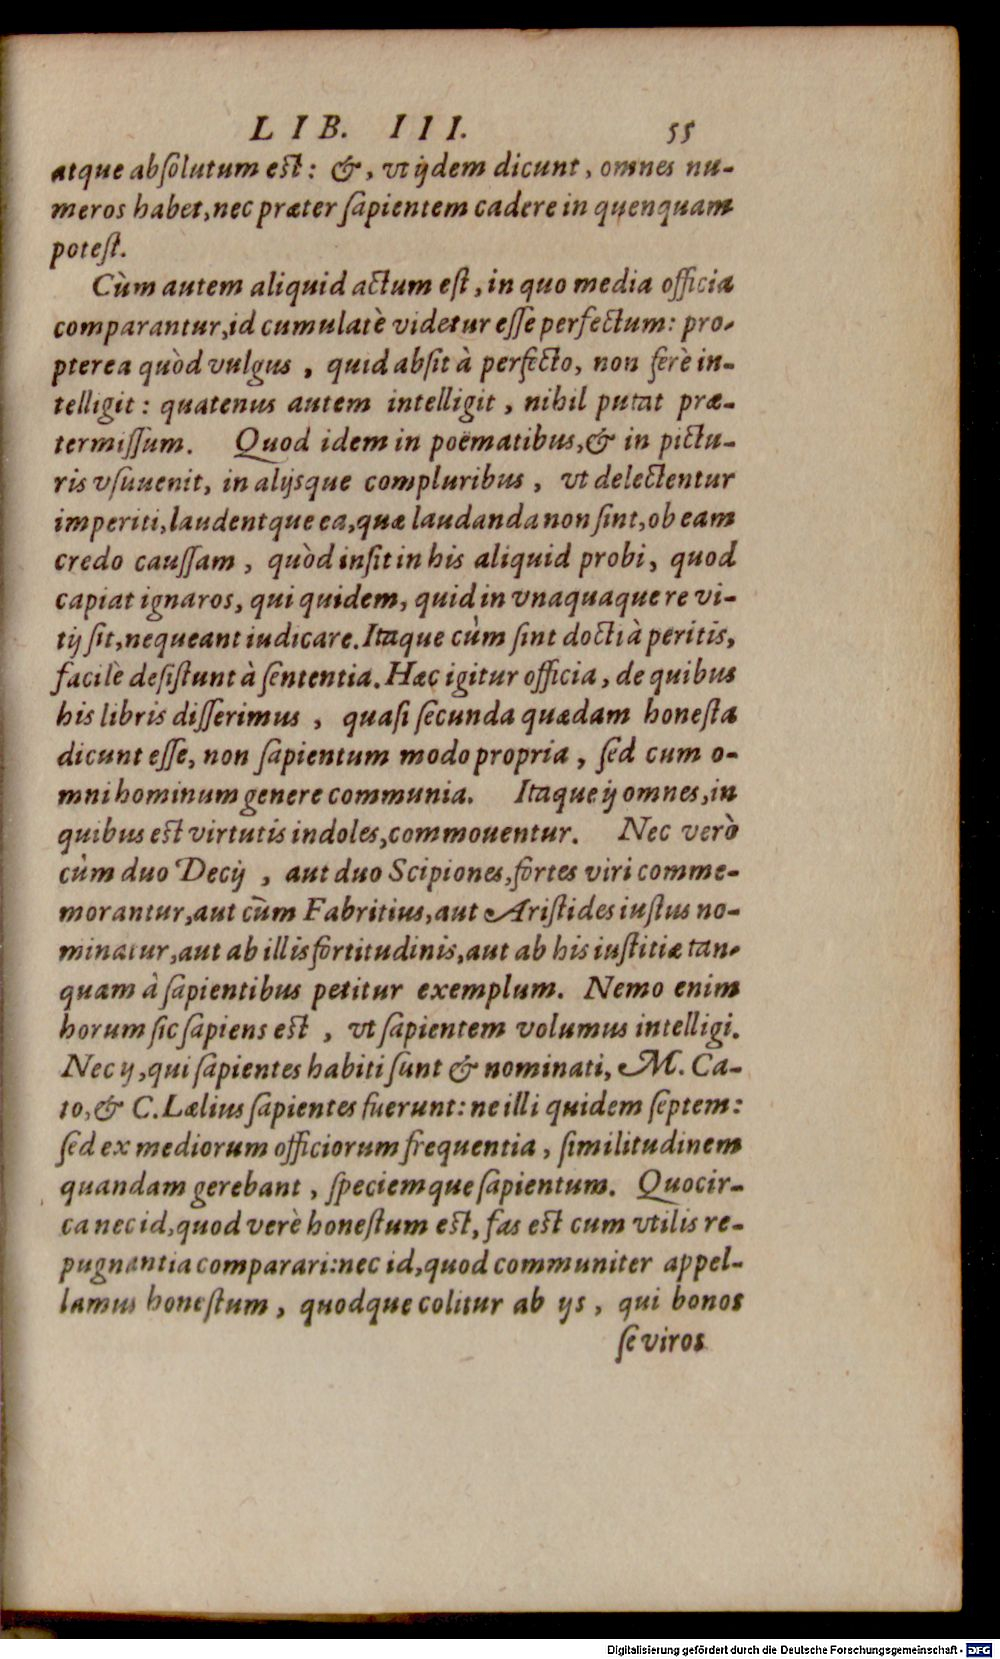 LIB. III. 55
atque absolutum est: &, vt ijdem dicunt, omnes nu-
meros habet, nec præter sapientem cadere in quenquam
potest.
Cùm autem aliquid actum est, in quo media officia
comparantur, id cumulatè videtur esse perfectum: pro-
pterea quòd vulgus, quid absit à perfecto, non ferè in-
telligit: quatenus autem intelligit, nihil putat præ-
termissum. Quod idem in poëmatibus, & in pictu-
ris vsuuenit, in alijsque compluribus, vt delectentur
imperiti, laudentque ea, quæ laudanda non sint, ob eam
credo caussam, quòd insit in his aliquid probi, quod
capiat ignaros, qui quidem, quid in vnaquaque re vi-
tij sit, nequeant iudicare. Itaque cùm sint docti à peritis,
facilè desistunt à sententia. Hæc igitur officia, de quibus
his libris disserimus, quasi secunda quædam honesta
dicunt esse, non sapientum modo propria, sed cum o-
mni hominum genere communia. Itaque ij omnes, in
quibus est virtutis indoles, commouentur. Nec verò
cùm duo Decij, aut duo Scipiones, fortes viri comme-
morantur, aut cũm Fabritius, aut Aristides iustus no-
minatur, aut ab illis fortitudinis, aut ab his iustitiæ tan-
quam à sapientibus petitur exemplum. Nemo enim
horum sic sapiens est, vt sapientem volumus intelligi.
Nec ij, qui sapientes habiti sunt & nominati, M. Ca-
to, & C. Lælius sapientes fuerunt: ne illi quidem septem:
sed ex mediorum officiorum frequentia, similitudinem
quandam gerebant, speciemque sapientum. Quocir-
ca nec id, quod verè honestum est, fas est cum vtilis re-
pugnantia comparari: nec id, quod communiter appel-
lamus honestum, quodque colitur ab ijs, qui bonos
se viros
Digitalisierung gefördert durch die Deutsche Forschungsgemeinschaft - DFG